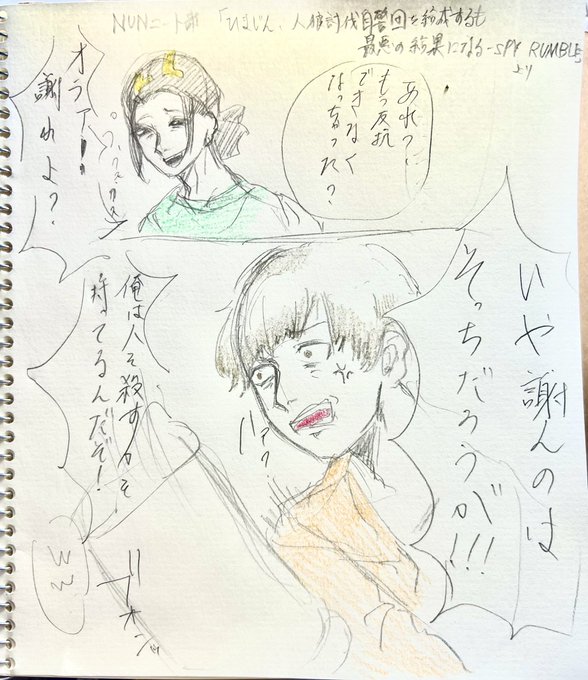 NUNニート部「ひまじん、人狼討伐自警団を結成するも
最悪の結果になる-SPY RUMBLE」
より
あれっ
もう反抗
できなく
なっちゃった?
オラァ!
謝れよ?
いや謝んのは
そっちだろうが!!!
俺は人を殺す力を
持ってるんだぞ!
ブオン